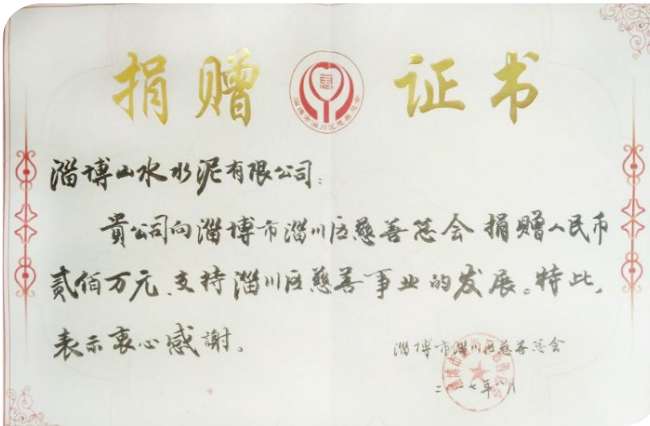 捐赠证书
淄博山水水泥有限公司：
貴公司向淄博市淄川区慈善总会捐赠人民币
贰佰万元，支持淄川区慈善事业的发展。特此，
表示衷心感謝。
淄博市淄川区慈善总会